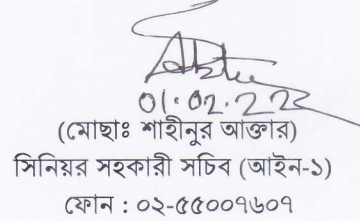 01.02.222
(মোছাঃ শাহীনুর আক্তার)
সিনিয়র সহকারী সচিব (আইন-১)
ফোন : ০২-৫৫০০৭৬০৭